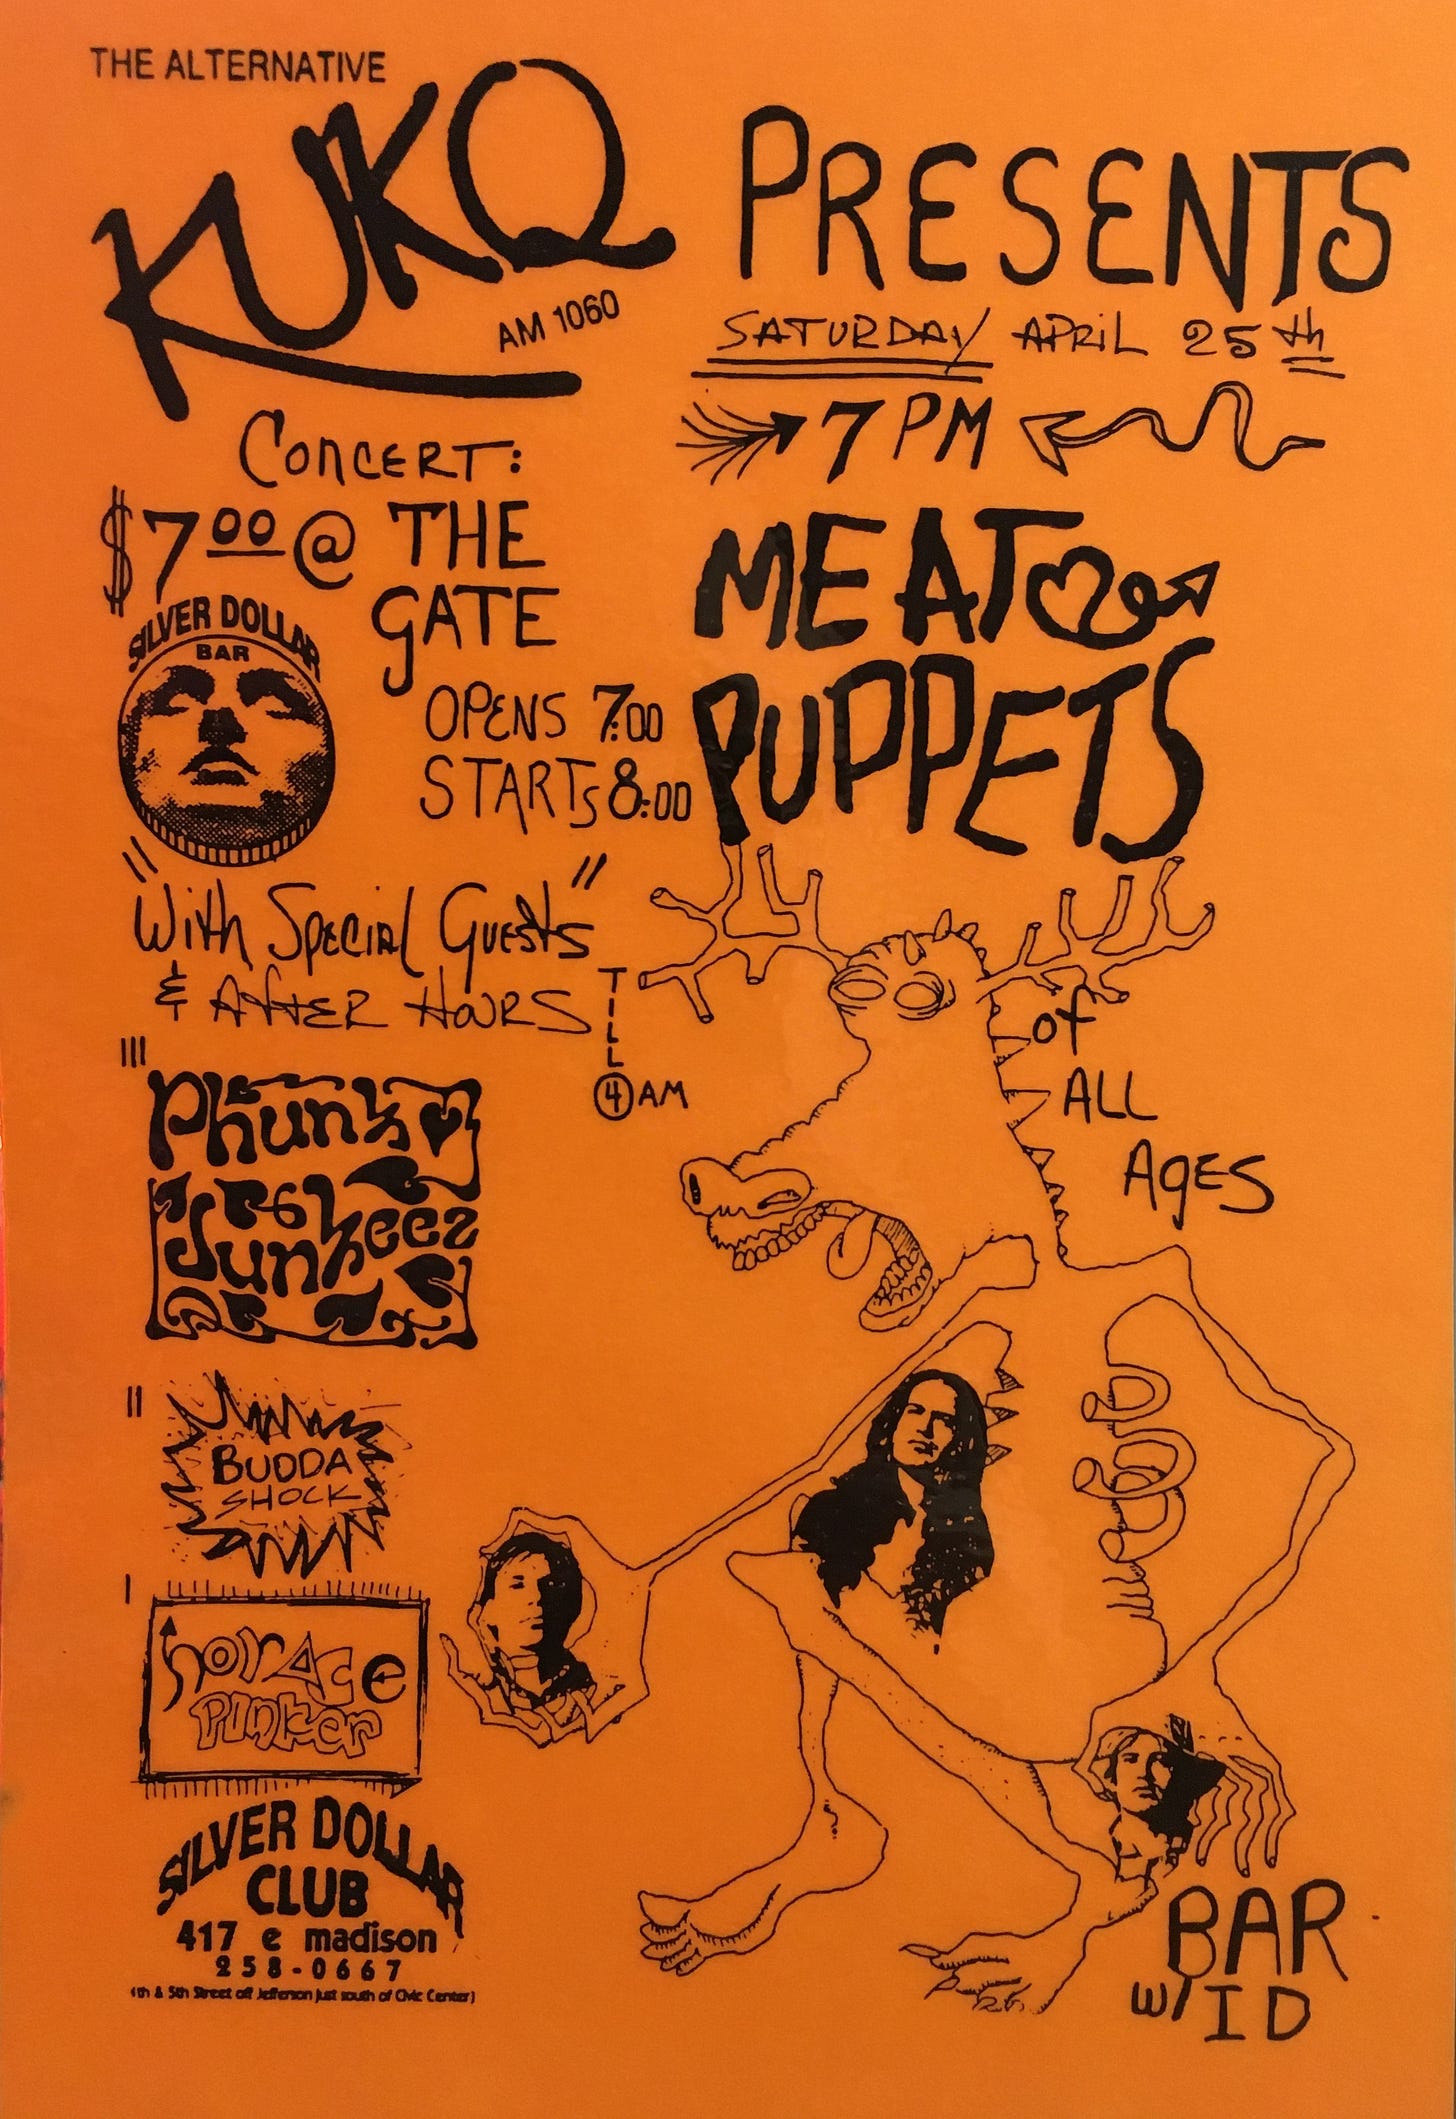 THE ALTERNATIVE
KUKQ
AM 1060
PRESENTS
SATURDAY APRIL 25th
7 PM
CONCERT:
$7.00 @ THE
GATE
SILVER DOLLAR
BAR
OPENS 7:00
STARTS 8:00
MEAT
PUPPETS
"With Special Guests"
& AFTER HOURS
TILL
4 AM
of
ALL
AGES
III
Phunk
Junkeez
II
BUDDA
SHOCK
I
horace
PINker
SILVER DOLLAR
CLUB
417 e madison
258-0667
4th & 5th Street off Jefferson just south of Civic Center)
BAR
w/ ID